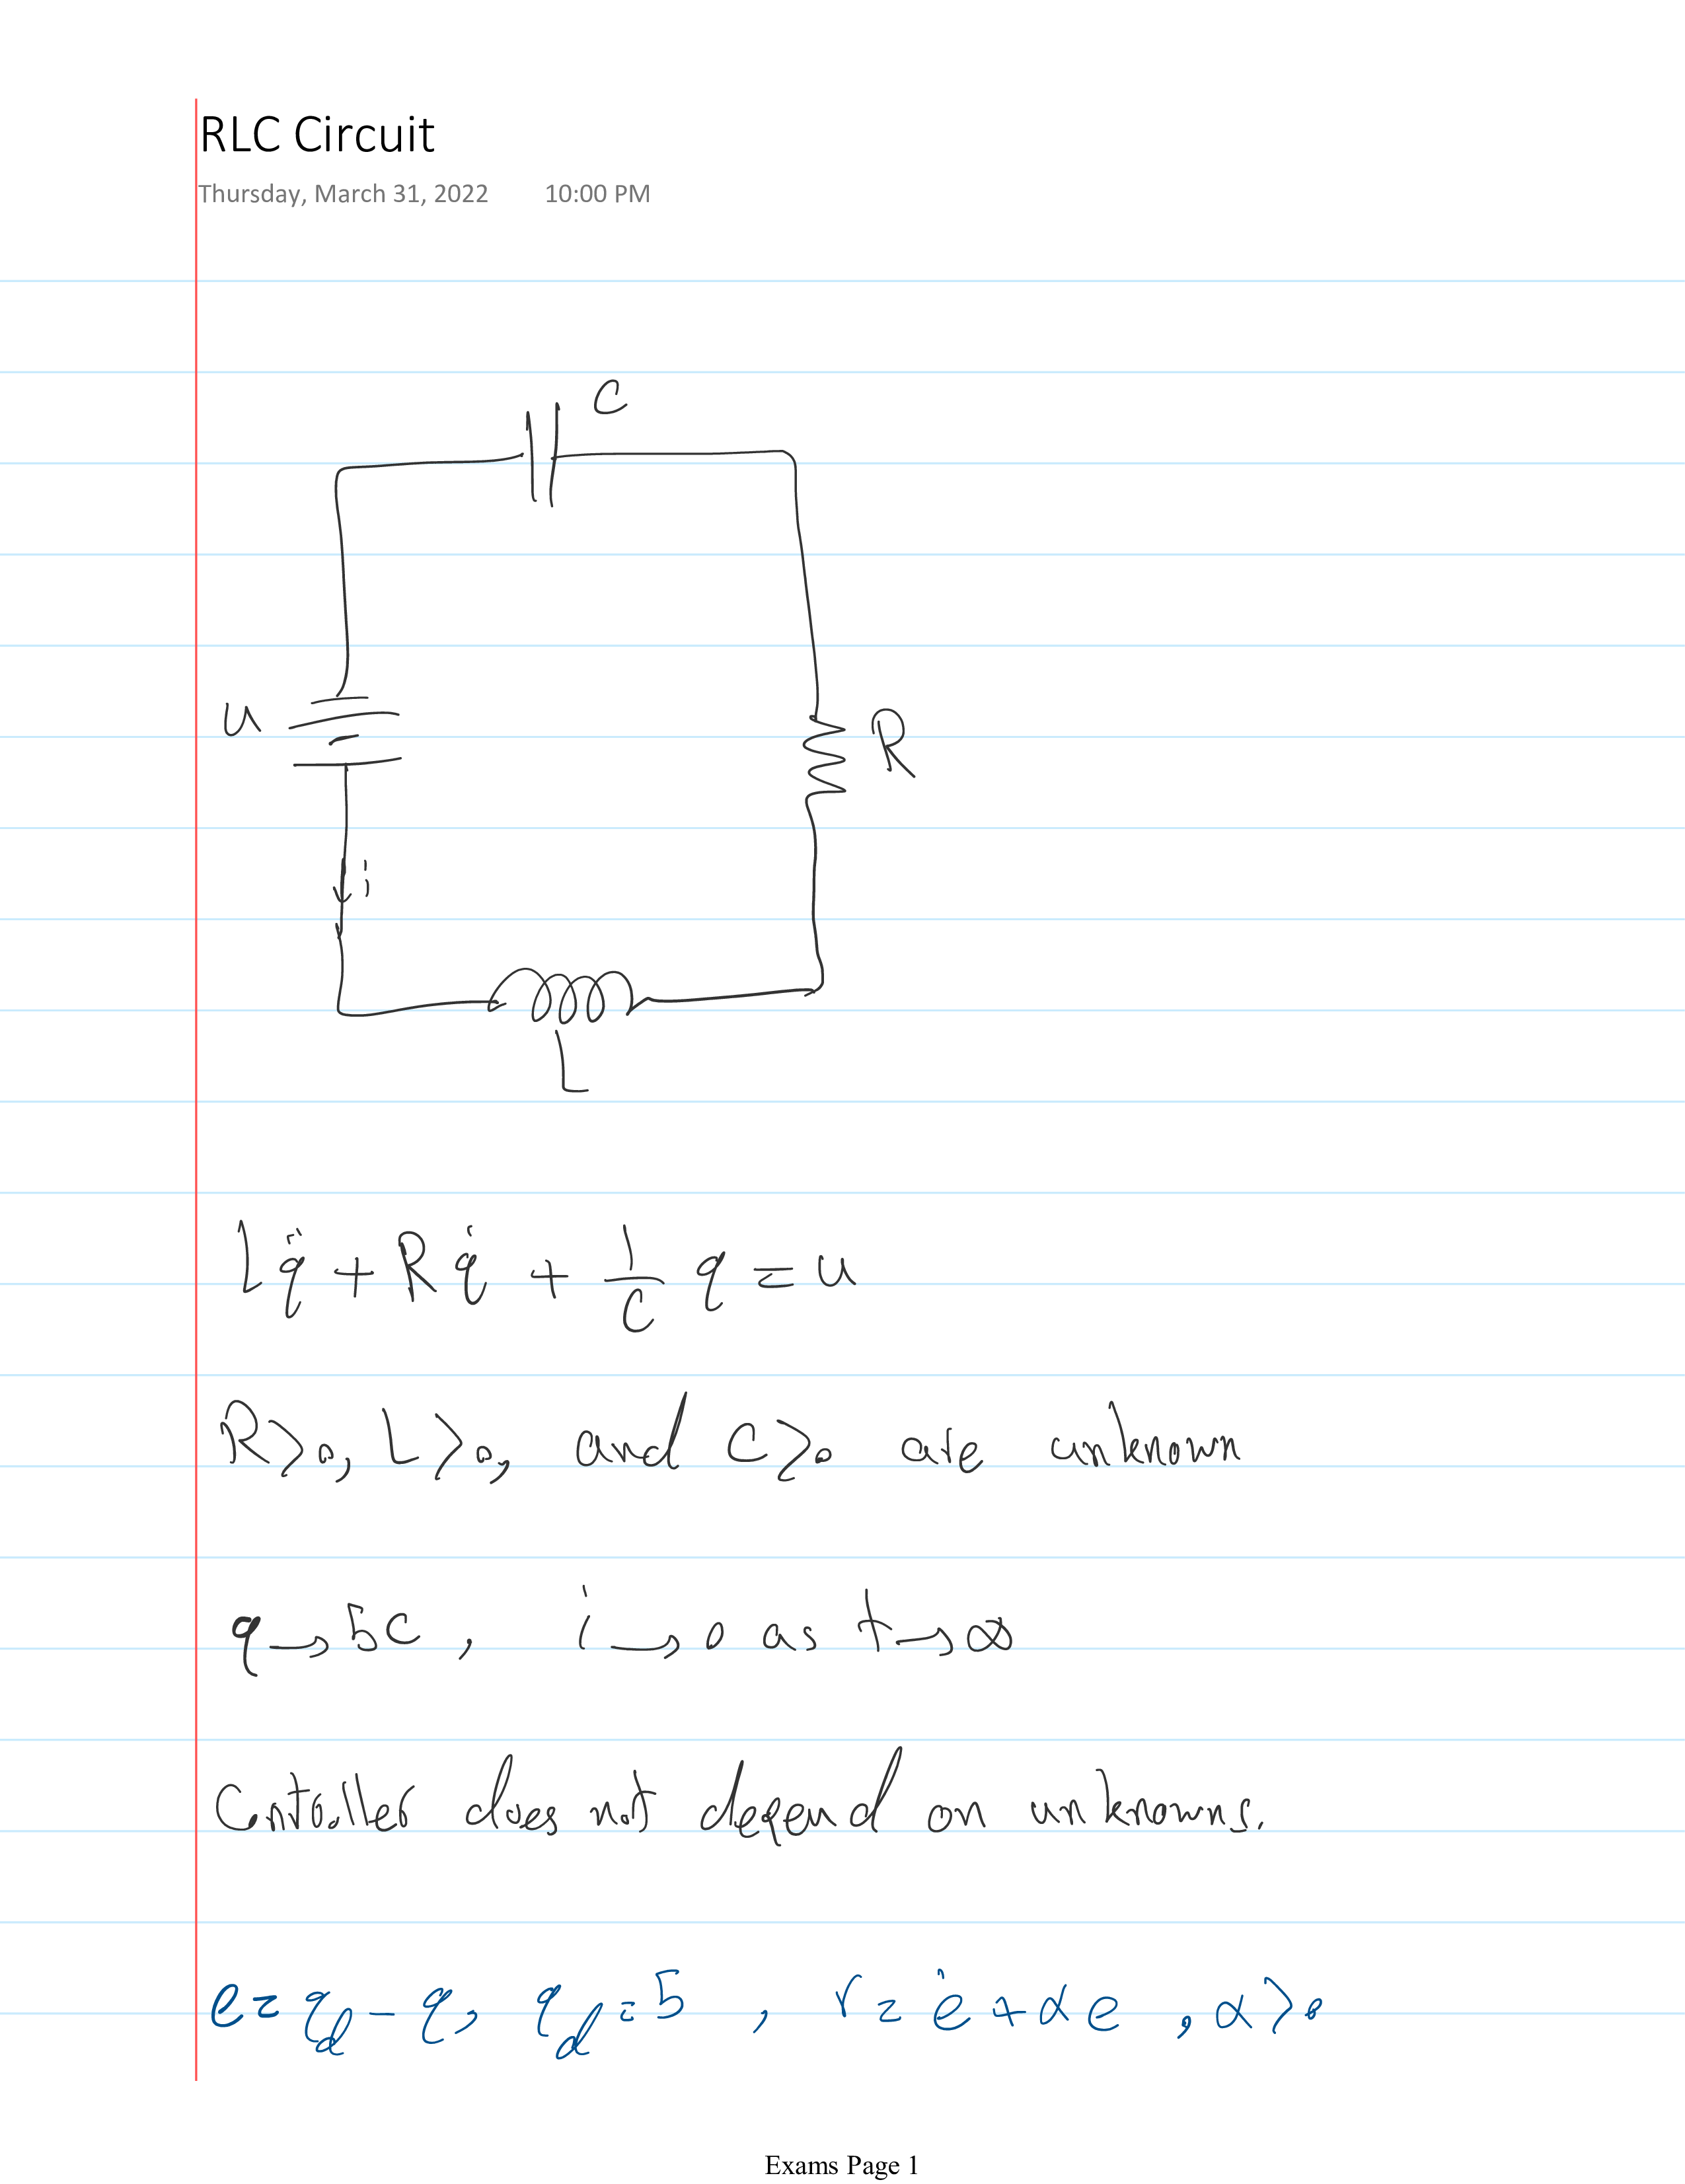 RLC Circuit
Thursday, March 31, 2022 10:00 PM
C
u
R
i
L
Lq̈ + Rq̇ + 1/C q = u
R>0, L>0, and C>0 are unknown
q→5C, i→0 as t→∞
Controller does not depend on unknowns.
e = q_d - q, q_d = 5, r = ė + αe, α>0
Exams Page 1